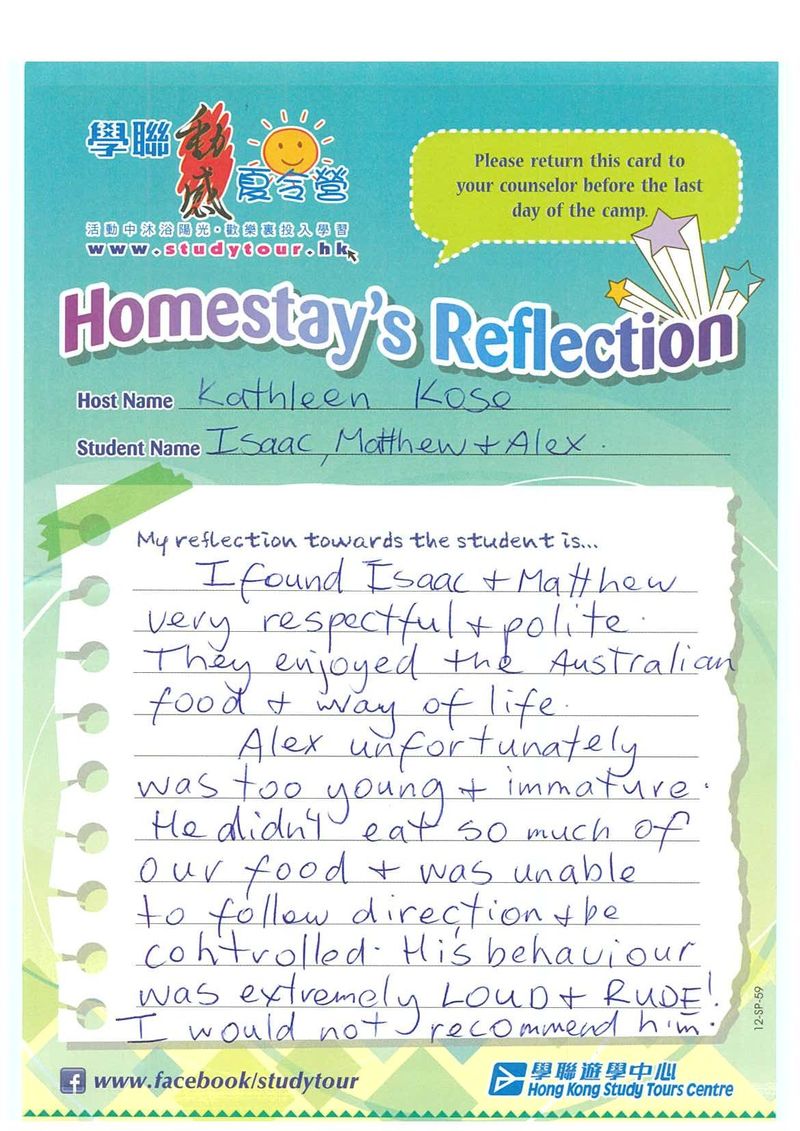 學聯動感夏令營
活動中沐浴陽光·歡樂裏投入學習
www.studytour.hk
Please return this card to
your counselor before the last
day of the camp.
Homestay's Reflection
Host Name Kathleen Kose
Student Name Isaac, Matthew + Alex.
My reflection towards the student is...
I found Isaac + Matthew
very respectful + polite.
They enjoyed the Australian
food + way of life.
Alex unfortunately
was too young + immature.
He didn't eat so much of
our food + was unable
to follow direction + be
controlled. His behaviour
was extremely LOUD + RUDE!
I would not recommend him.
12-SP-59
www.facebook/studytour
學聯遊學中心
Hong Kong Study Tours Centre